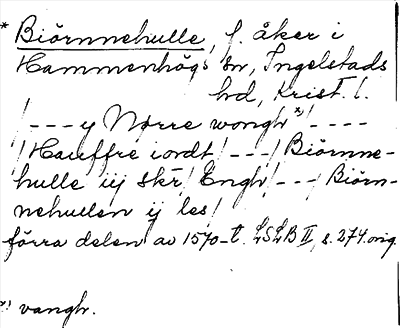 * Biörnnehulle, f. åker i
Hammenhögs sn, Ingelstads
hd, Krist. l.
/ - - - y Nørre wongh *) / - - - -
/ Hauffre iordt / - - - / Biörnne-
hulle iij skr / Engh / - - - / Biörn-
nehullen ij les /
förra delen av 1570-t. LSLB II, s. 274. orig.
*) vangh.